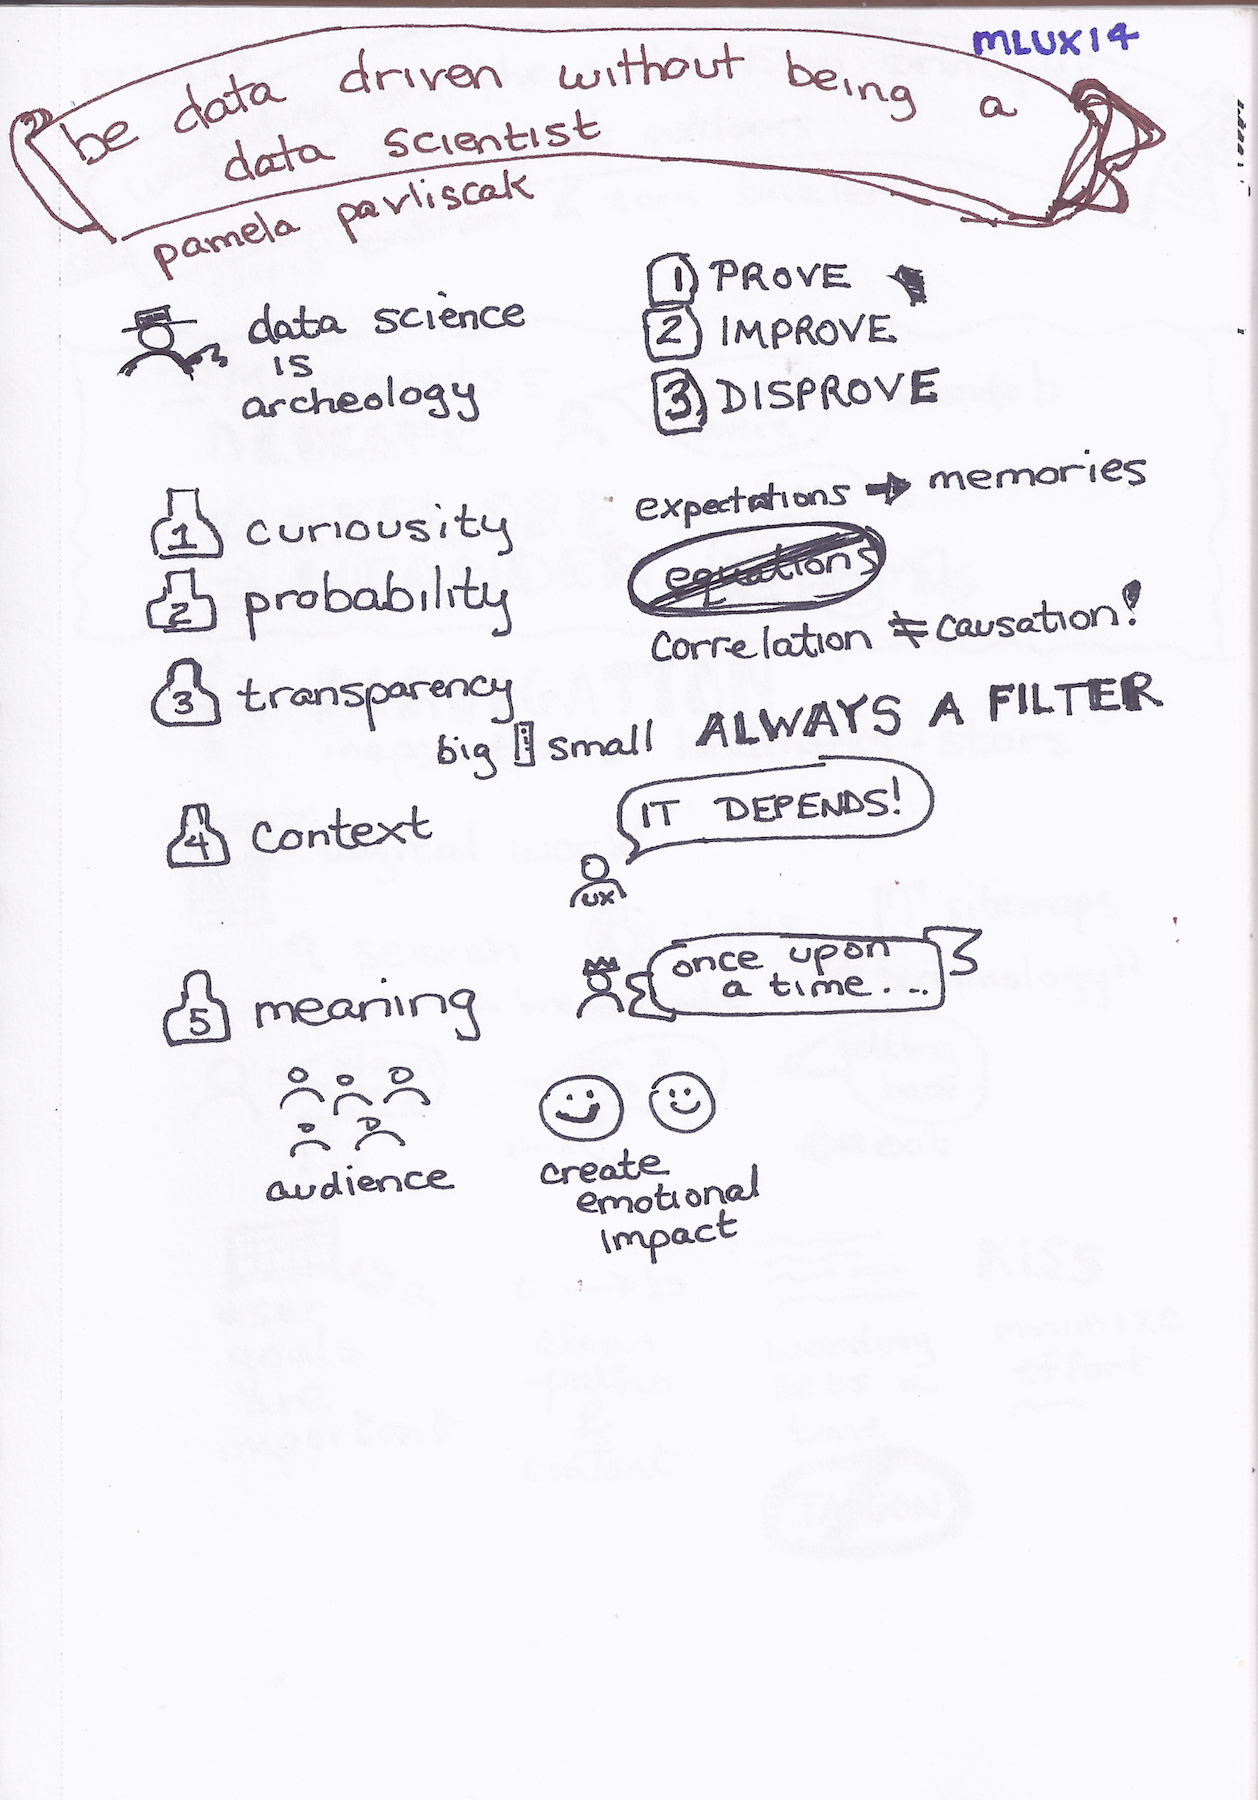 MLUX14
be data driven without being a
data scientist
pamela pavliscak
data science
is
archeology
1 PROVE
2 IMPROVE
3 DISPROVE
1 curiousity
expectations → memories
equations
2 probability
correlation ≠ causation!
3 transparency
big small
ALWAYS A FILTER
4 context
IT DEPENDS!
UX
5 meaning
once upon
a time...
audience
create
emotional
impact